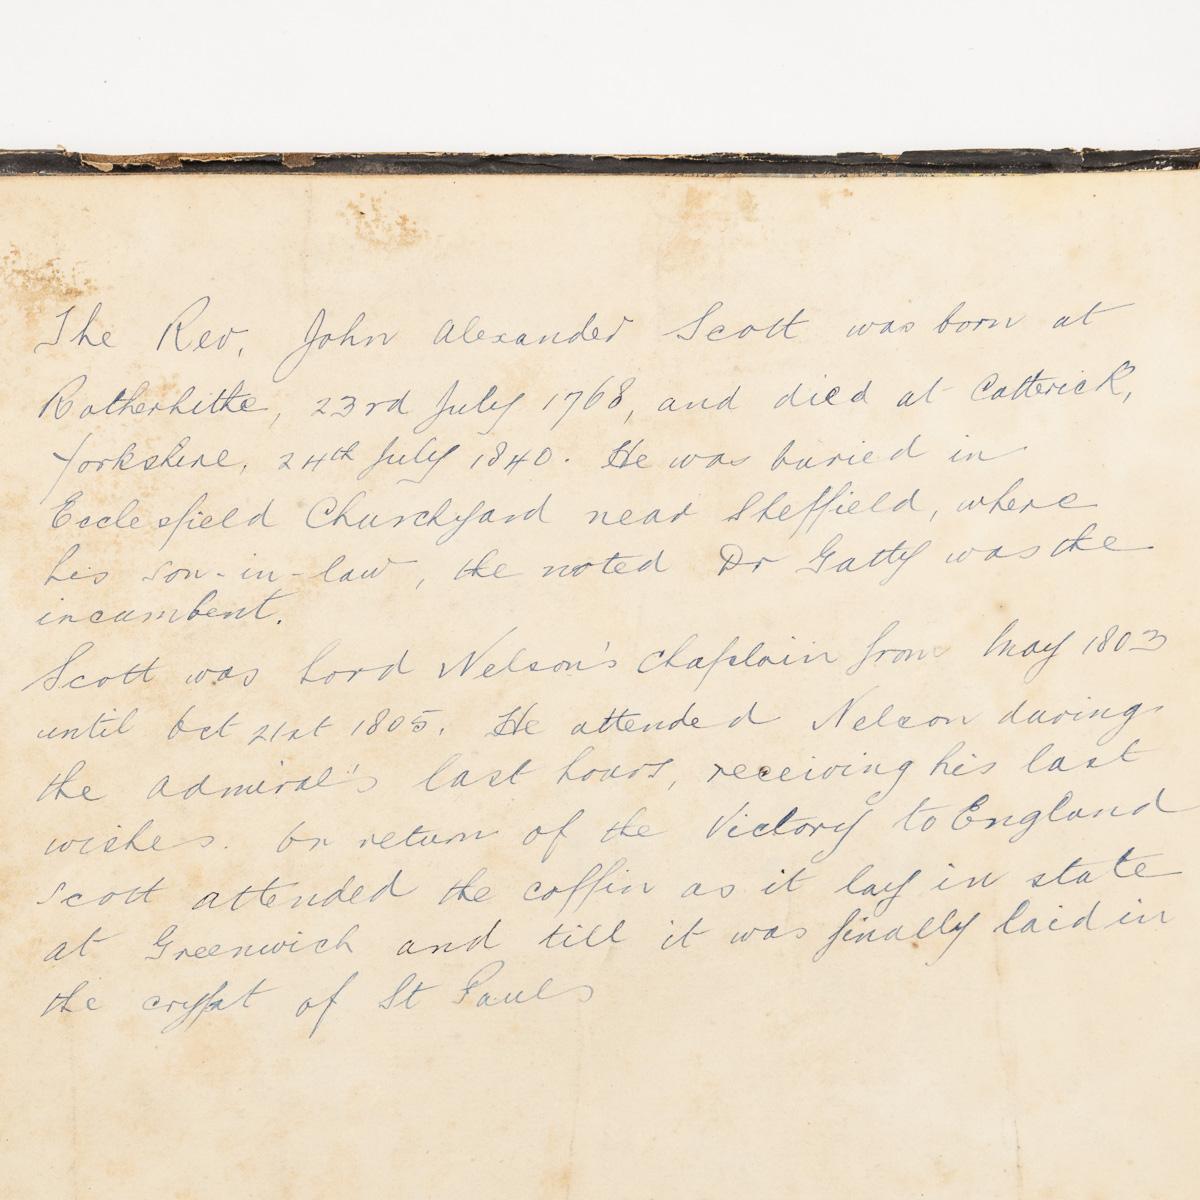 The Rev. John Alexander Scott was born at
Rotherhithe, 23rd July 1768, and died at Catterick,
Yorkshire, 24th July 1840. He was buried in
Ecclesfield Churchyard near Sheffield, where
his son-in-law, the noted Dr Gatty was the
incumbent.
Scott was Lord Nelson's chaplain from May 1803
until Oct 21st 1805. He attended Nelson during
the Admiral's last hours, receiving his last
wishes. On return of the Victory to England
Scott attended the coffin as it lay in state
at Greenwich and till it was finally laid in
the crypt of St Pauls